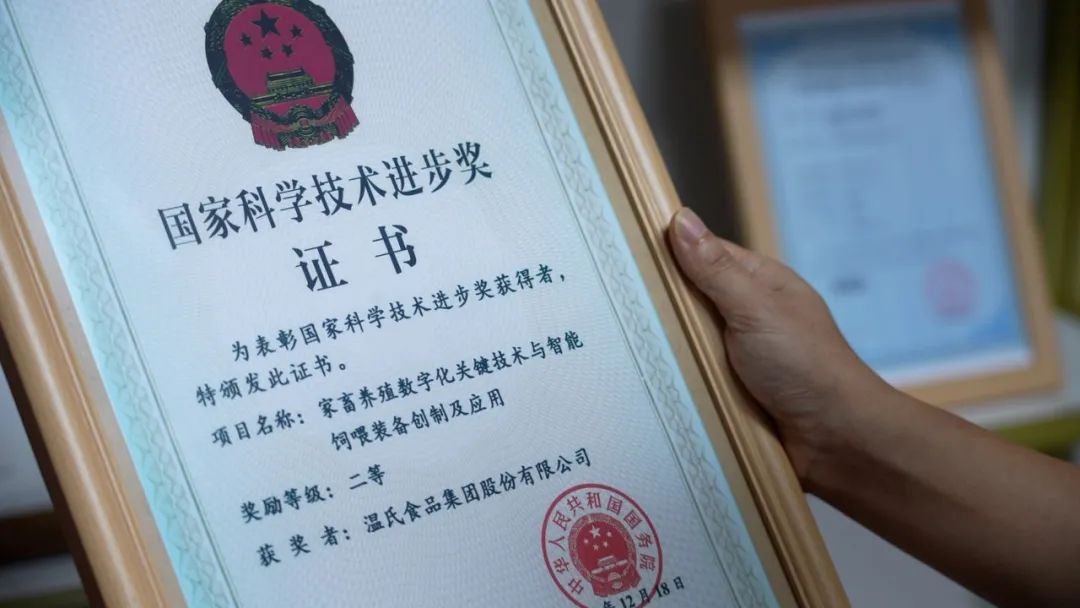 国家科学技术进步奖
证书
为表彰国家科学技术进步奖获得者，
特颁发此证书。
项目名称：家畜养殖数字化关键技术与智能
饲喂装备创制及应用
奖励等级：二等
获奖者：温氏食品集团股份有限公司
中华人民共和国国务院
年12月18日